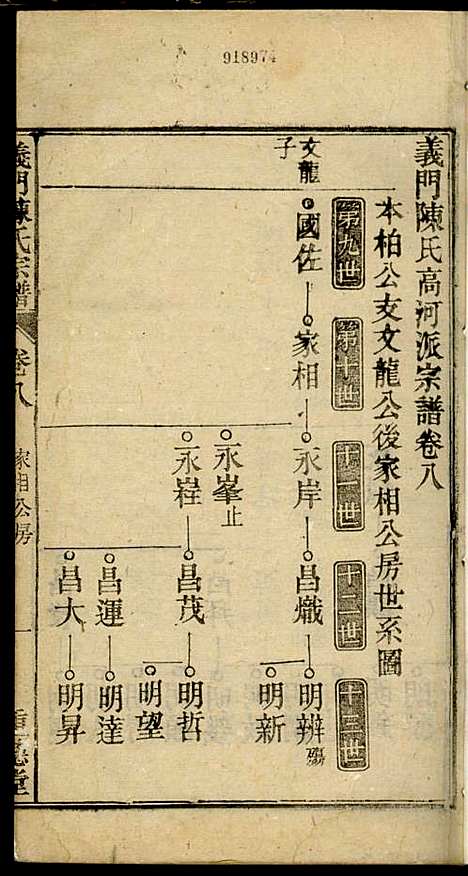 918974
義門陳氏高河派宗譜卷八
本柏公支文龍公後家相公房世系圖
第九世
第十世
十一世
十二世
十三世
文龍
子
國佐
家相
永岸
昌熾
明辨 殤
明新
永峯 止
永程
昌茂
明哲
明望
昌運
明達
昌大
明昇
義門陳氏宗譜
卷八
家相公房
一
堂